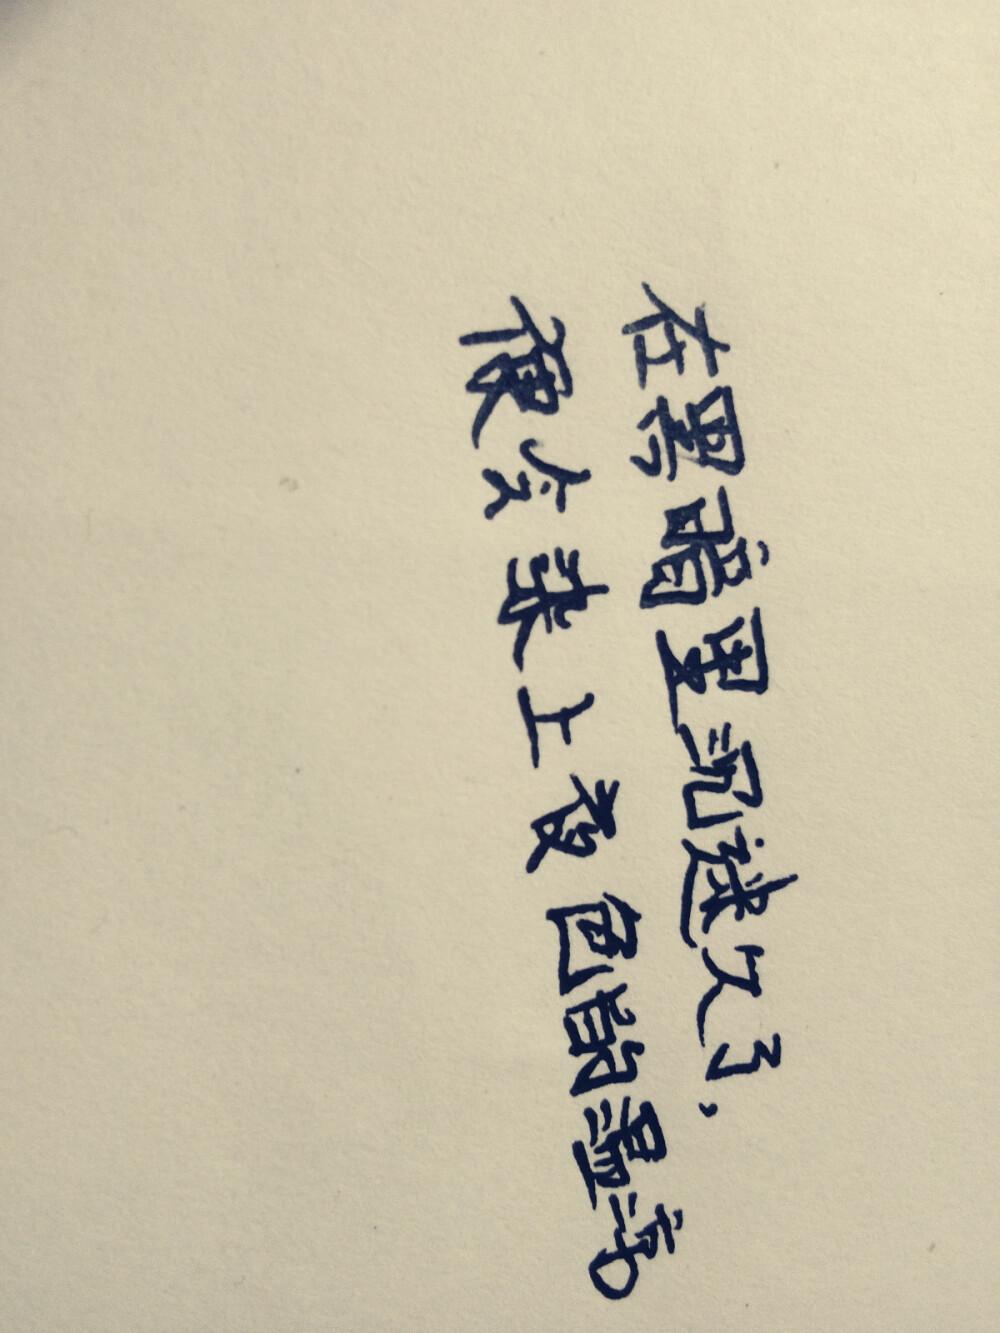 在黑暗里沉迷久了，
便会染上夜色的湿凉